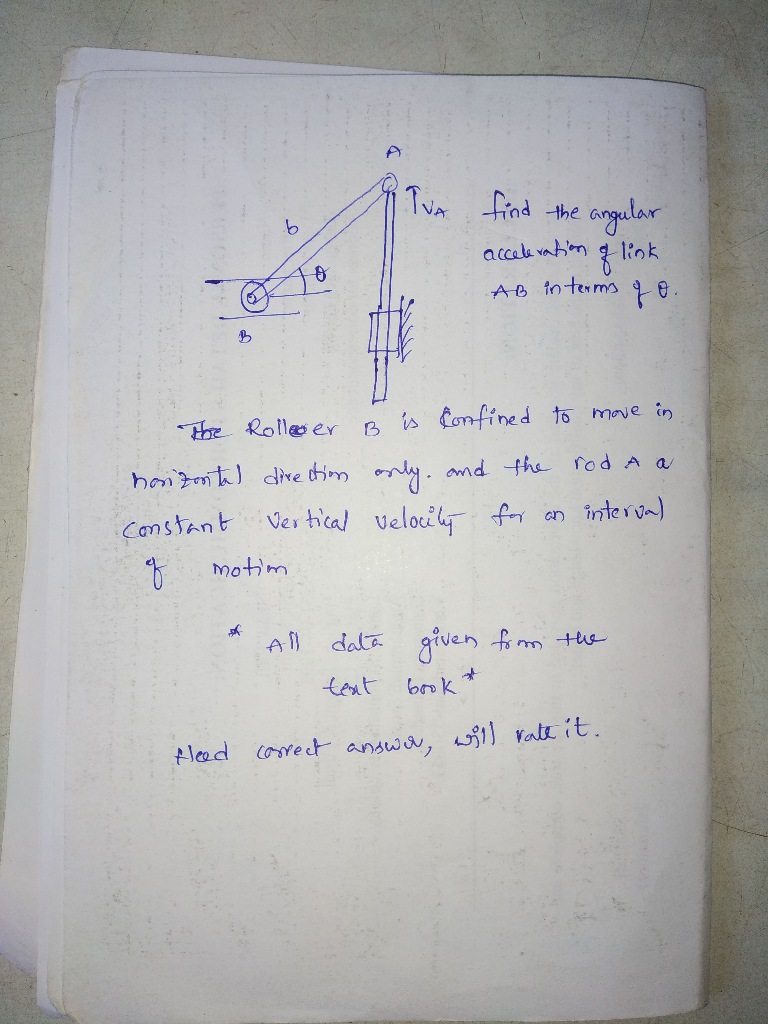 A
b
θ
B
↑VA
find the angular
acceleration of link
AB in terms of θ.
The Roller B is Confined to move in
horizontal direction only. and the rod A a
constant vertical velocity for an interval
of motion
* All data given from the
text book *
Need correct answer, will rate it.